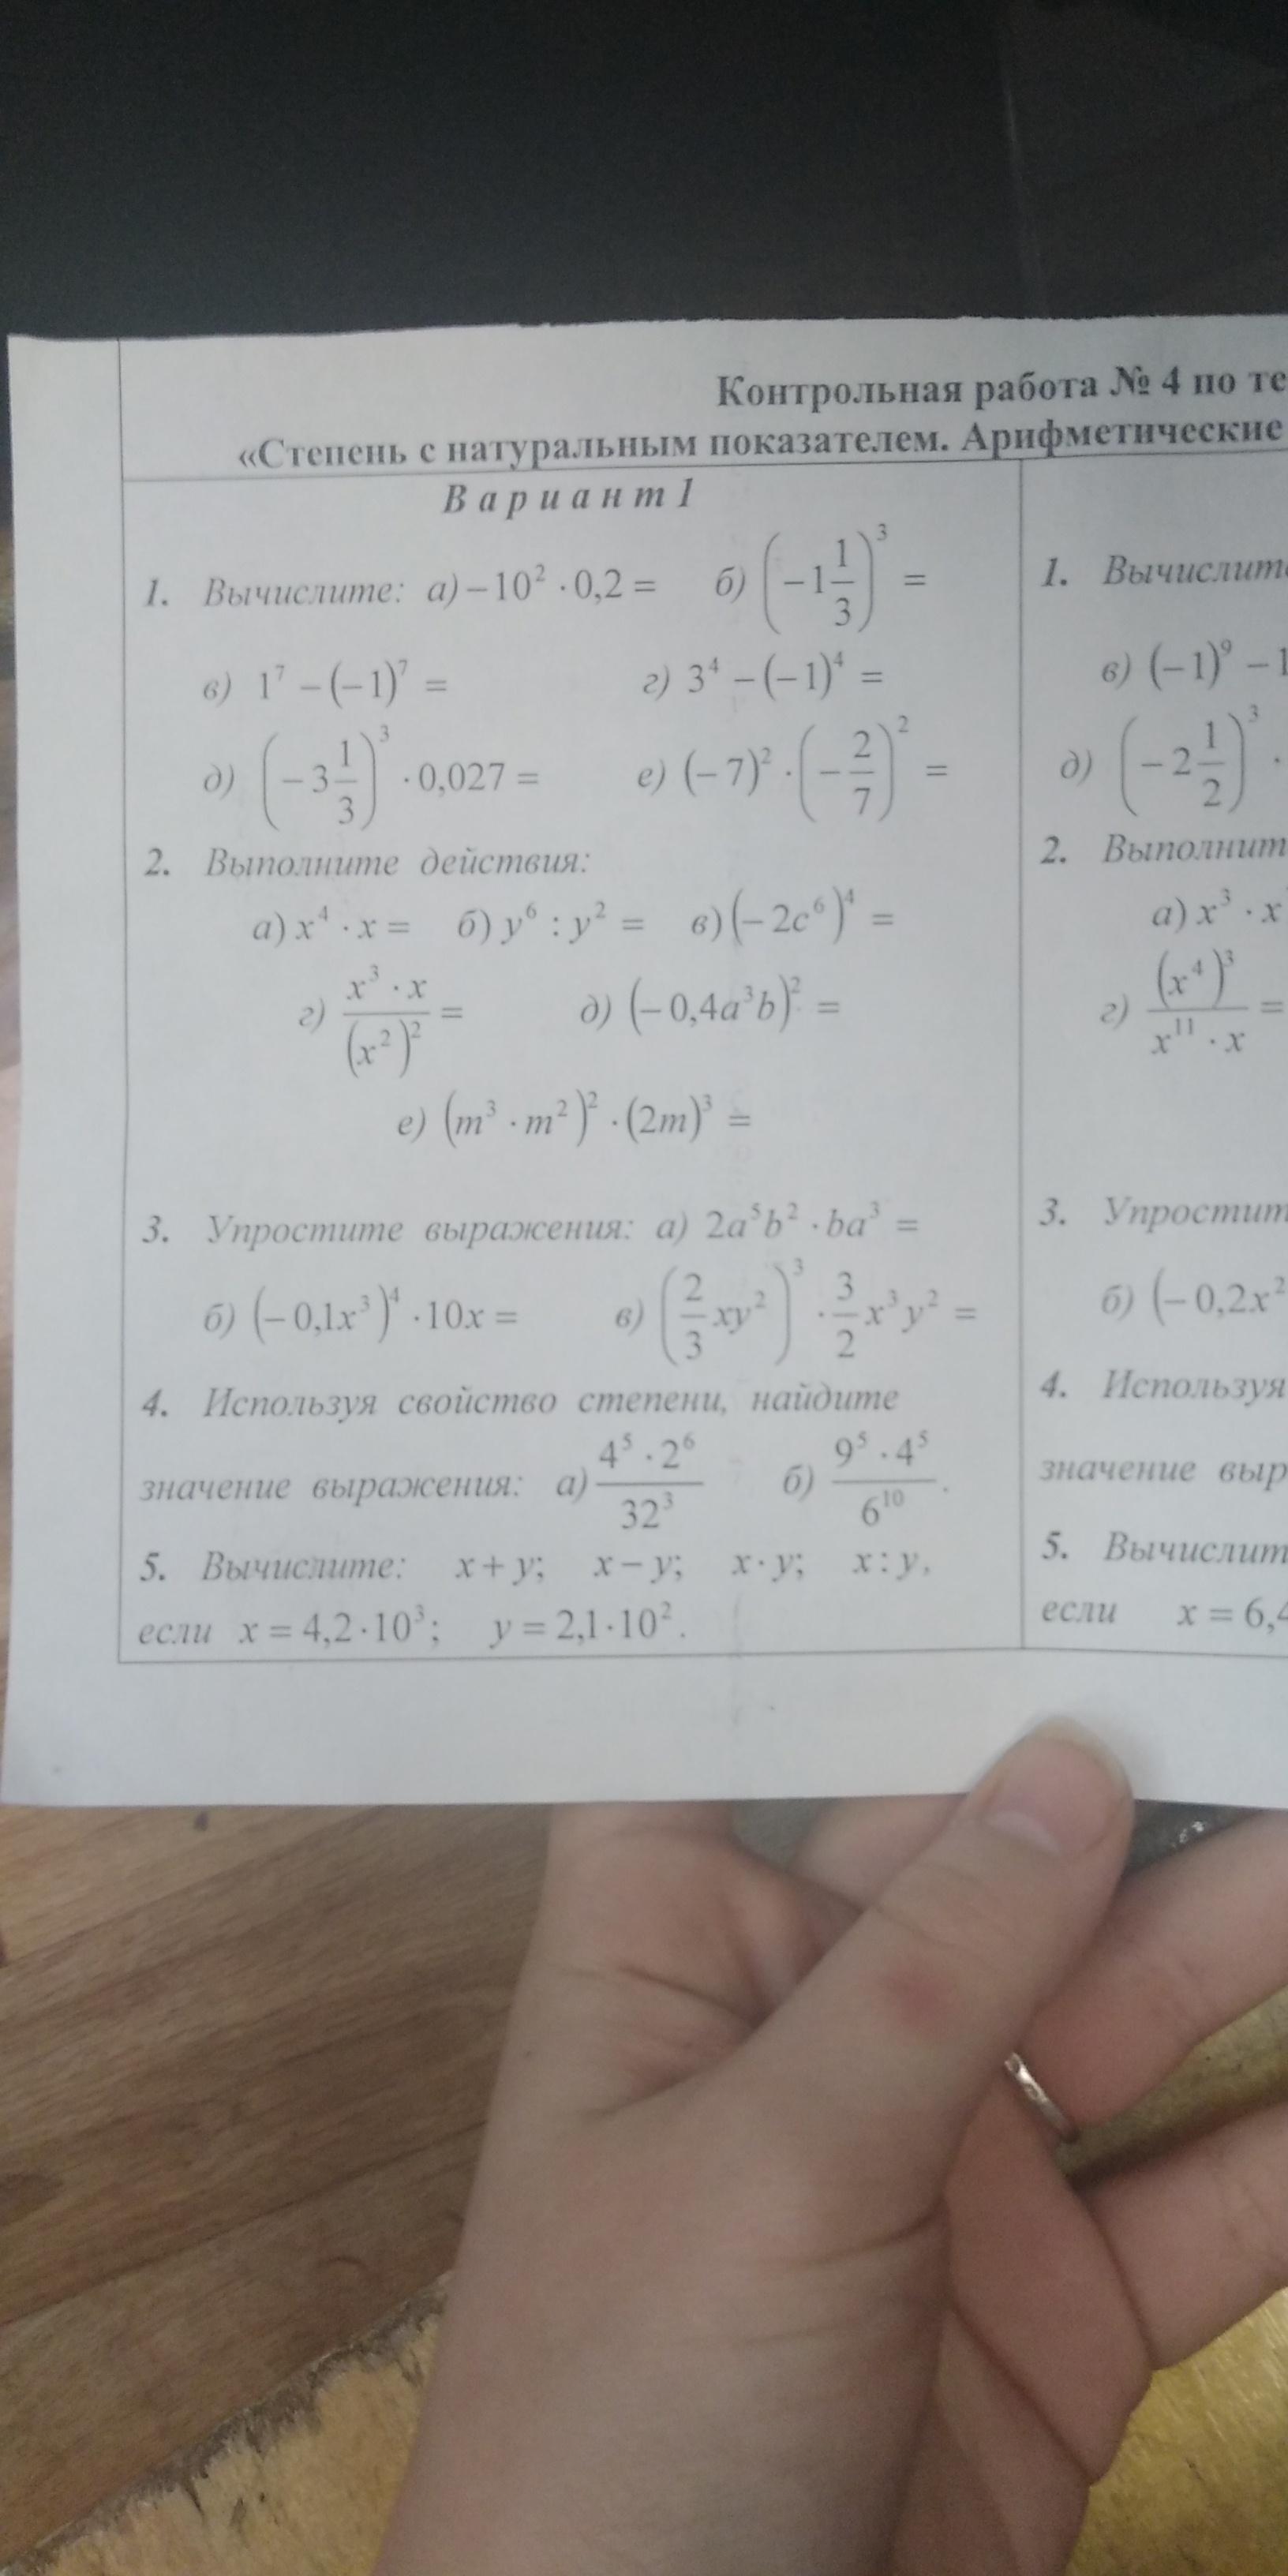 Контрольная работа № 4 по те
«Степень с натуральным показателем. Арифметические
Вариант 1
1. Вычислите: а) −10² · 0,2 = б) (−1 1/3)³ =
в) 1⁷ − (−1)⁷ = г) 3⁴ − (−1)⁴ =
д) (−3 1/3)³ · 0,027 = е) (−7)² · (−2/7)² =
2. Выполните действия:
а) x⁴ · x = б) y⁶ : y² = в) (−2c⁶)⁴ =
г) (x³ · x)/(x²)² = д) (−0,4a³b)² =
е) (m³ · m²)² · (2m)³ =
3. Упростите выражения: а) 2a⁵b² · ba³ =
б) (−0,1x³)⁴ · 10x = в) (2/3 xy²)³ · 3/2 x³y² =
4. Используя свойство степени, найдите
значение выражения: а) (4⁵ · 2⁶)/32³ б) (9⁵ · 4⁵)/6¹⁰.
5. Вычислите: x + y; x − y; x · y; x : y,
если x = 4,2 · 10³; y = 2,1 · 10².
1. Вычислите
в) (−1)⁹ − 1
д) (−2 1/2)³ ·
2. Выполнит
а) x³ · x
г) (x⁴)³/(x¹¹ · x) =
3. Упростит
б) (−0,2x²
4. Используя
значение выр
5. Вычислит
если x = 6,4